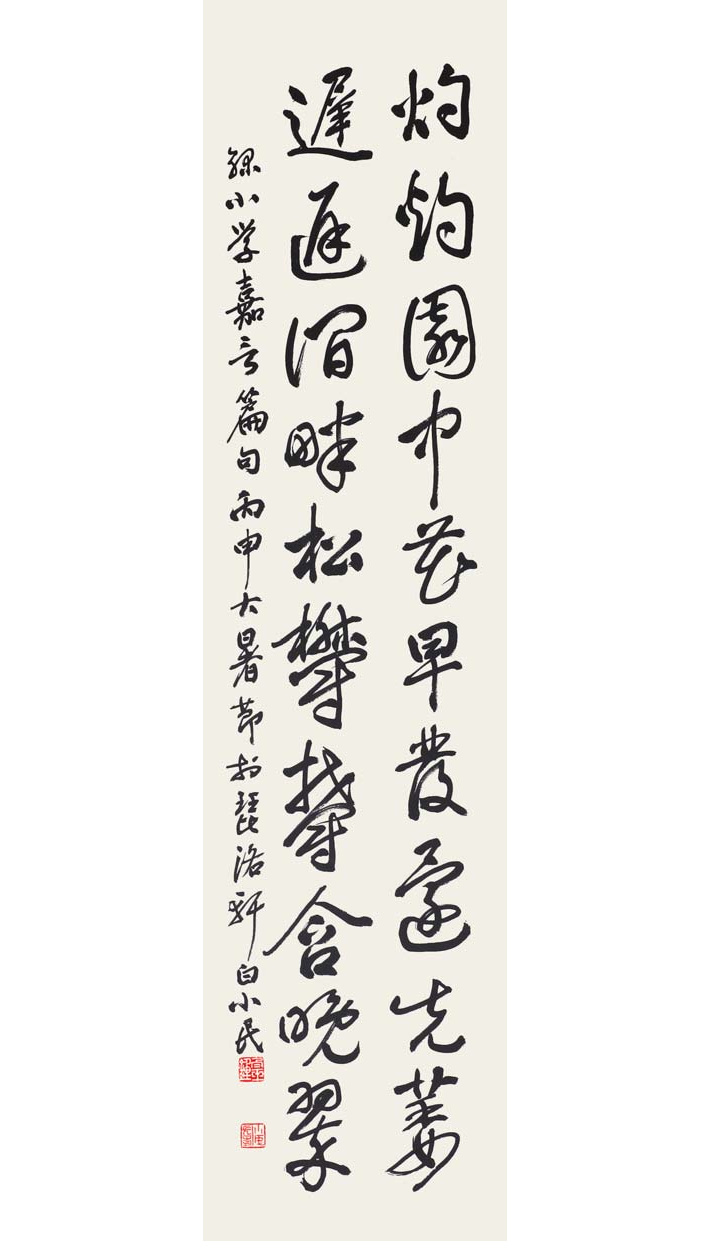 灼灼園中花早發還先萎
遲遲澗畔松欝欝含晚翠
錄小学嘉言篇句丙申大暑節於琵洛軒白小民